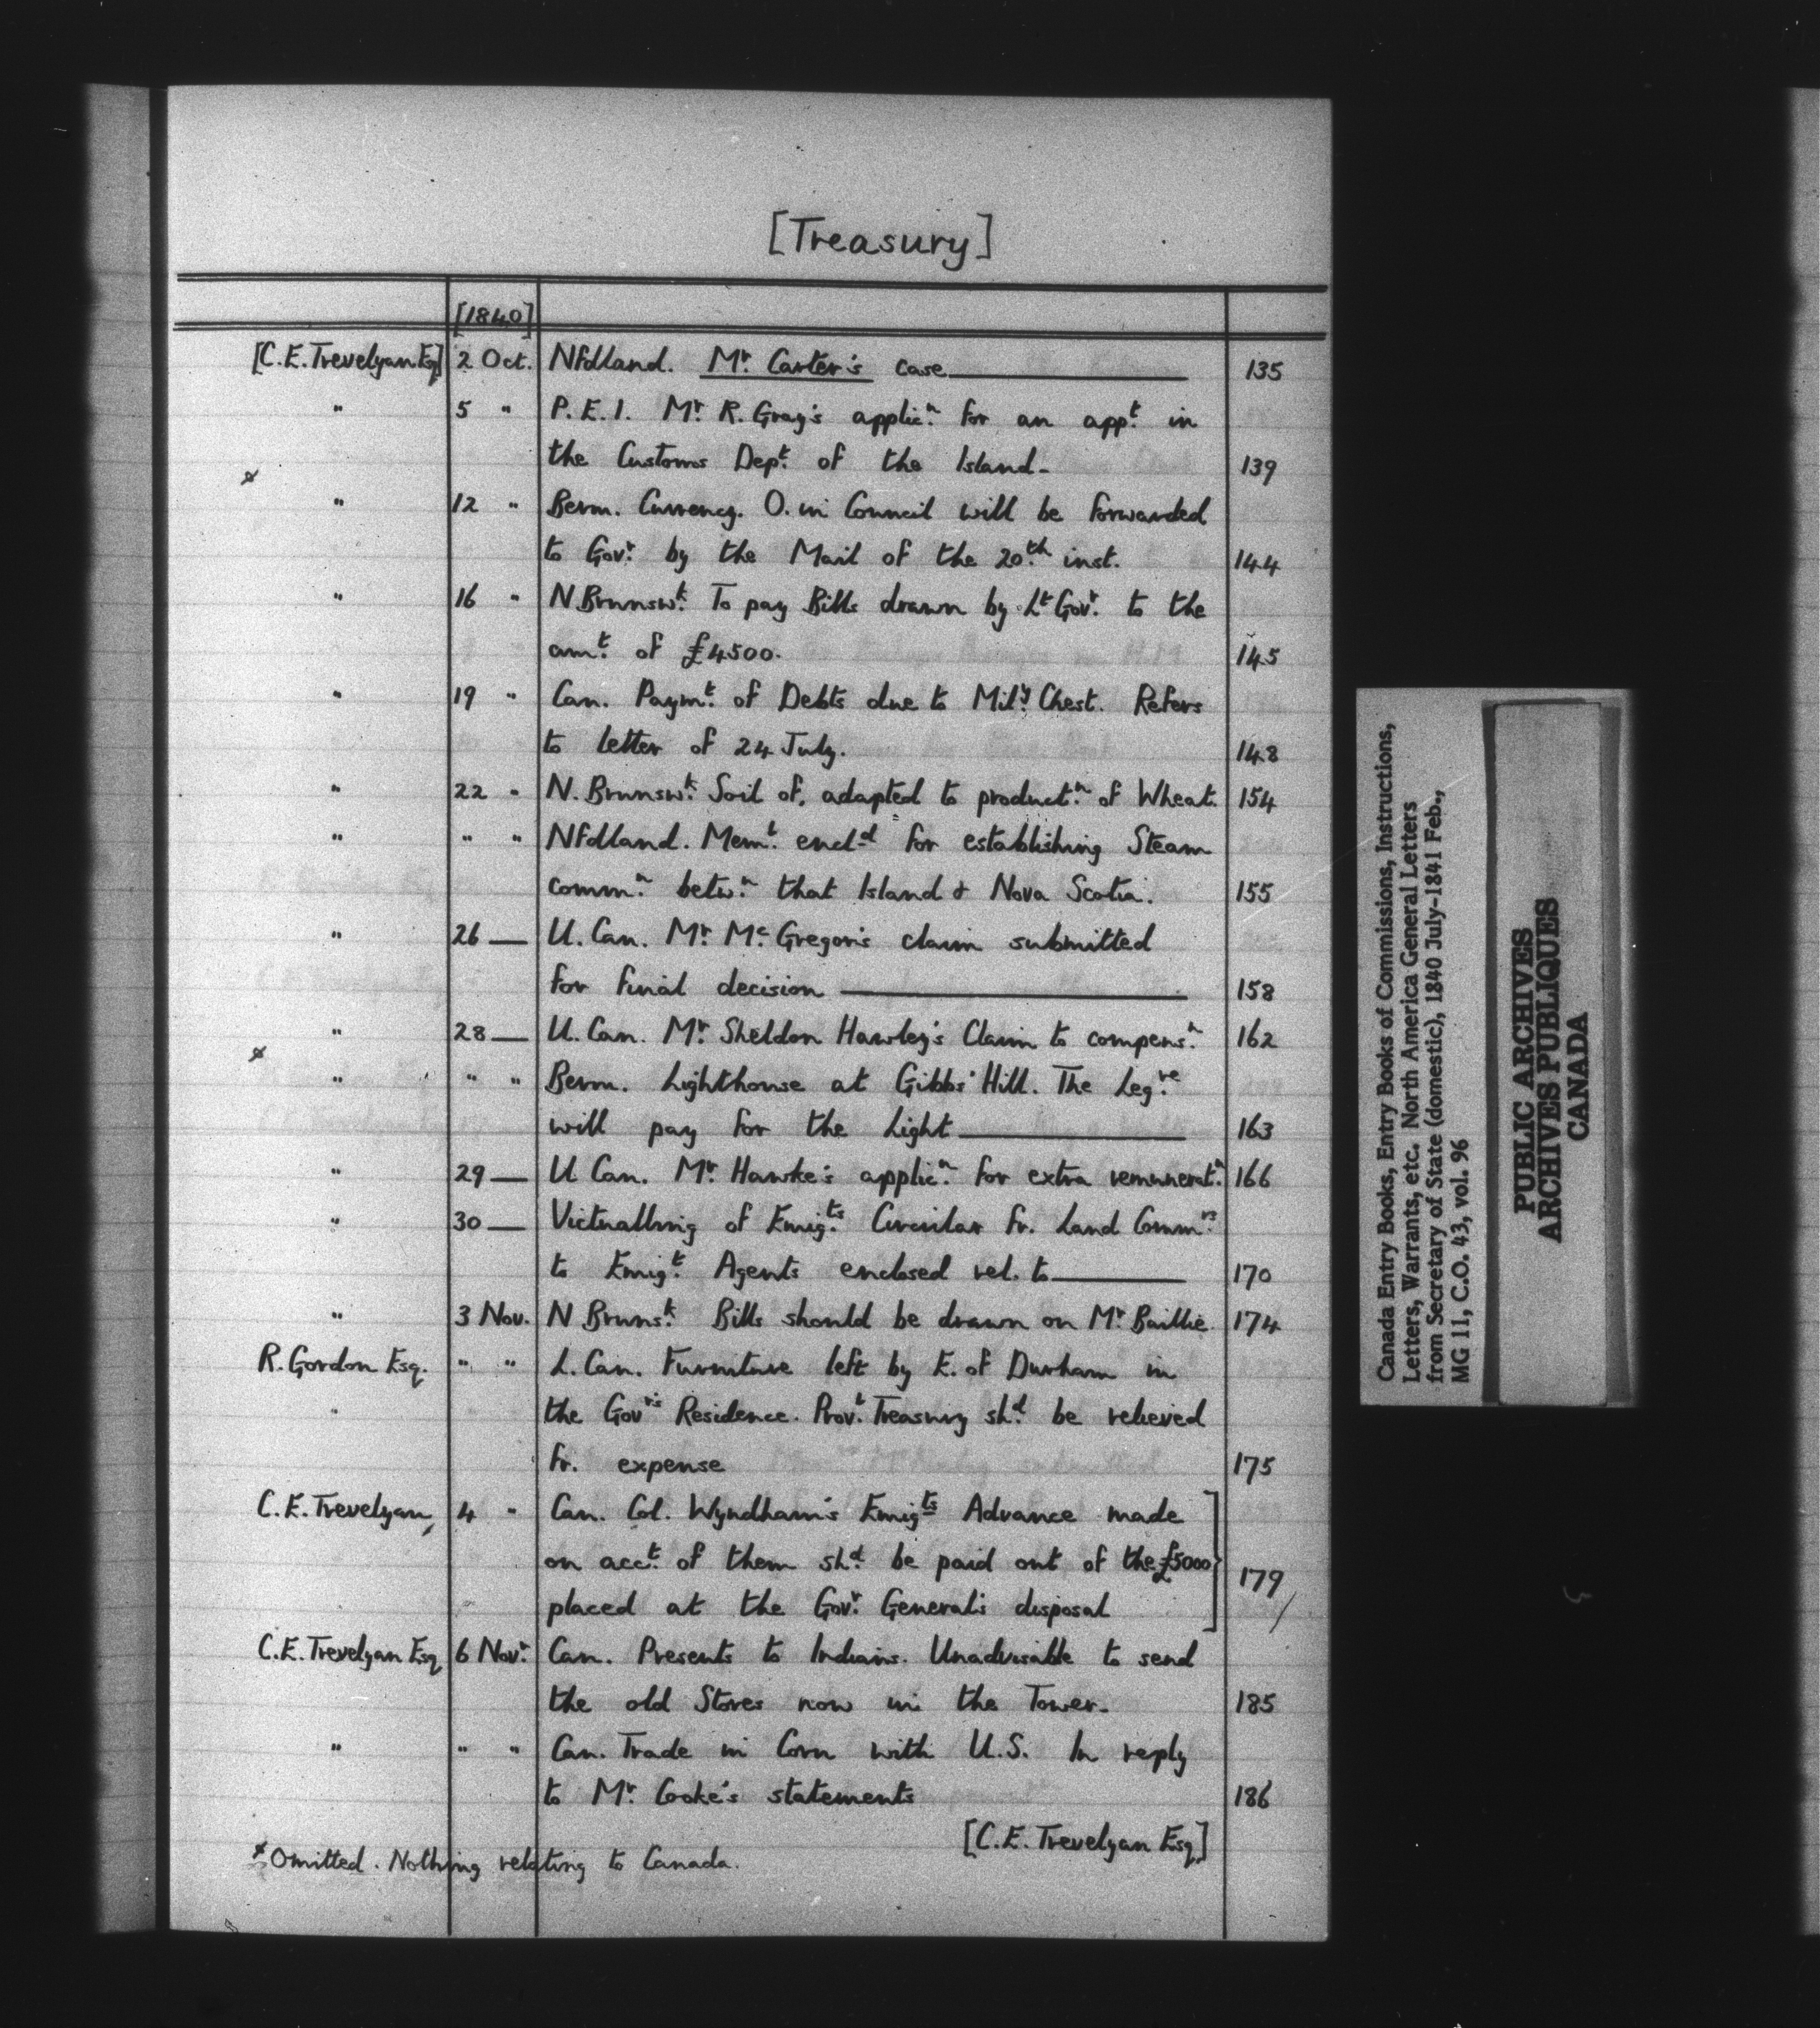 [Treasury]
[1840]
[C.E. Trevelyan Esq] 2 Oct. Nfdland. Mr. Carter's case 135
" 5 " P.E.I. Mr. R. Gray's applicn. for an appt. in
the Customs Dept. of the Island- 139
" 12 " Berm. Currency. O. in Council will be forwarded
to Govr. by the Mail of the 20th. inst. 144
" 16 " N.Brunswk. To pay Bills drawn by Lt Govr. to the
amt. of £4500. 145
" 19 " Can. Paymt. of Debts due to Mily. Chest. Refers
to letter of 24 July. 148
" 22 " N. Brunswk. Soil of, adapted to productn. of Wheat. 154
" " " Nfdland. Memt. encld for establishing Steam
commn. betwn. that Island & Nova Scotia. 155
" 26 — U. Can. Mr. Mc.Gregor's claim submitted
for final decision 158
" 28 — U. Can. Mr. Sheldon Hawley's Claim to compensn. 162
" " " Berm. Lighthouse at Gibbs' Hill. The Legre.
will pay for the Light 163
" 29 — U Can. Mr. Hawke's applicn. for extra remuneratn. 166
" 30 — Victualling of Emigts. Circular fr. Land Commrs.
to Emigt. Agents enclosed rel. to 170
" 3 Nov. N Brunsk. Bills should be drawn on Mr. Baillie. 174
R. Gordon Esq. " " L. Can. Furniture left by E. of Durham in
" the Govr's Residence. Provl. Treasury shd. be relieved
fr. expense 175
C.E. Trevelyan, 4 " Can. Col. Wyndham's Emigts Advance made
on acct. of them shd. be paid out of the £5000
placed at the Govr. General's disposal 179
C.E. Trevelyan Esq 6 Novr. Can. Presents to Indians. Unadvisable to send
the old Stores now in the Tower. 185
" " " Can. Trade in Corn with U.S. In reply
to Mr. Cooke's statements 186
[C.E. Trevelyan Esq]
Omitted. Nothing relating to Canada.
Canada Entry Books, Entry Books of Commissions, Instructions,
Letters, Warrants, etc. North America General Letters
from Secretary of State (domestic), 1840 July-1841 Feb.,
MG 11, C.O. 43, vol. 96
PUBLIC ARCHIVES
ARCHIVES PUBLIQUES
CANADA